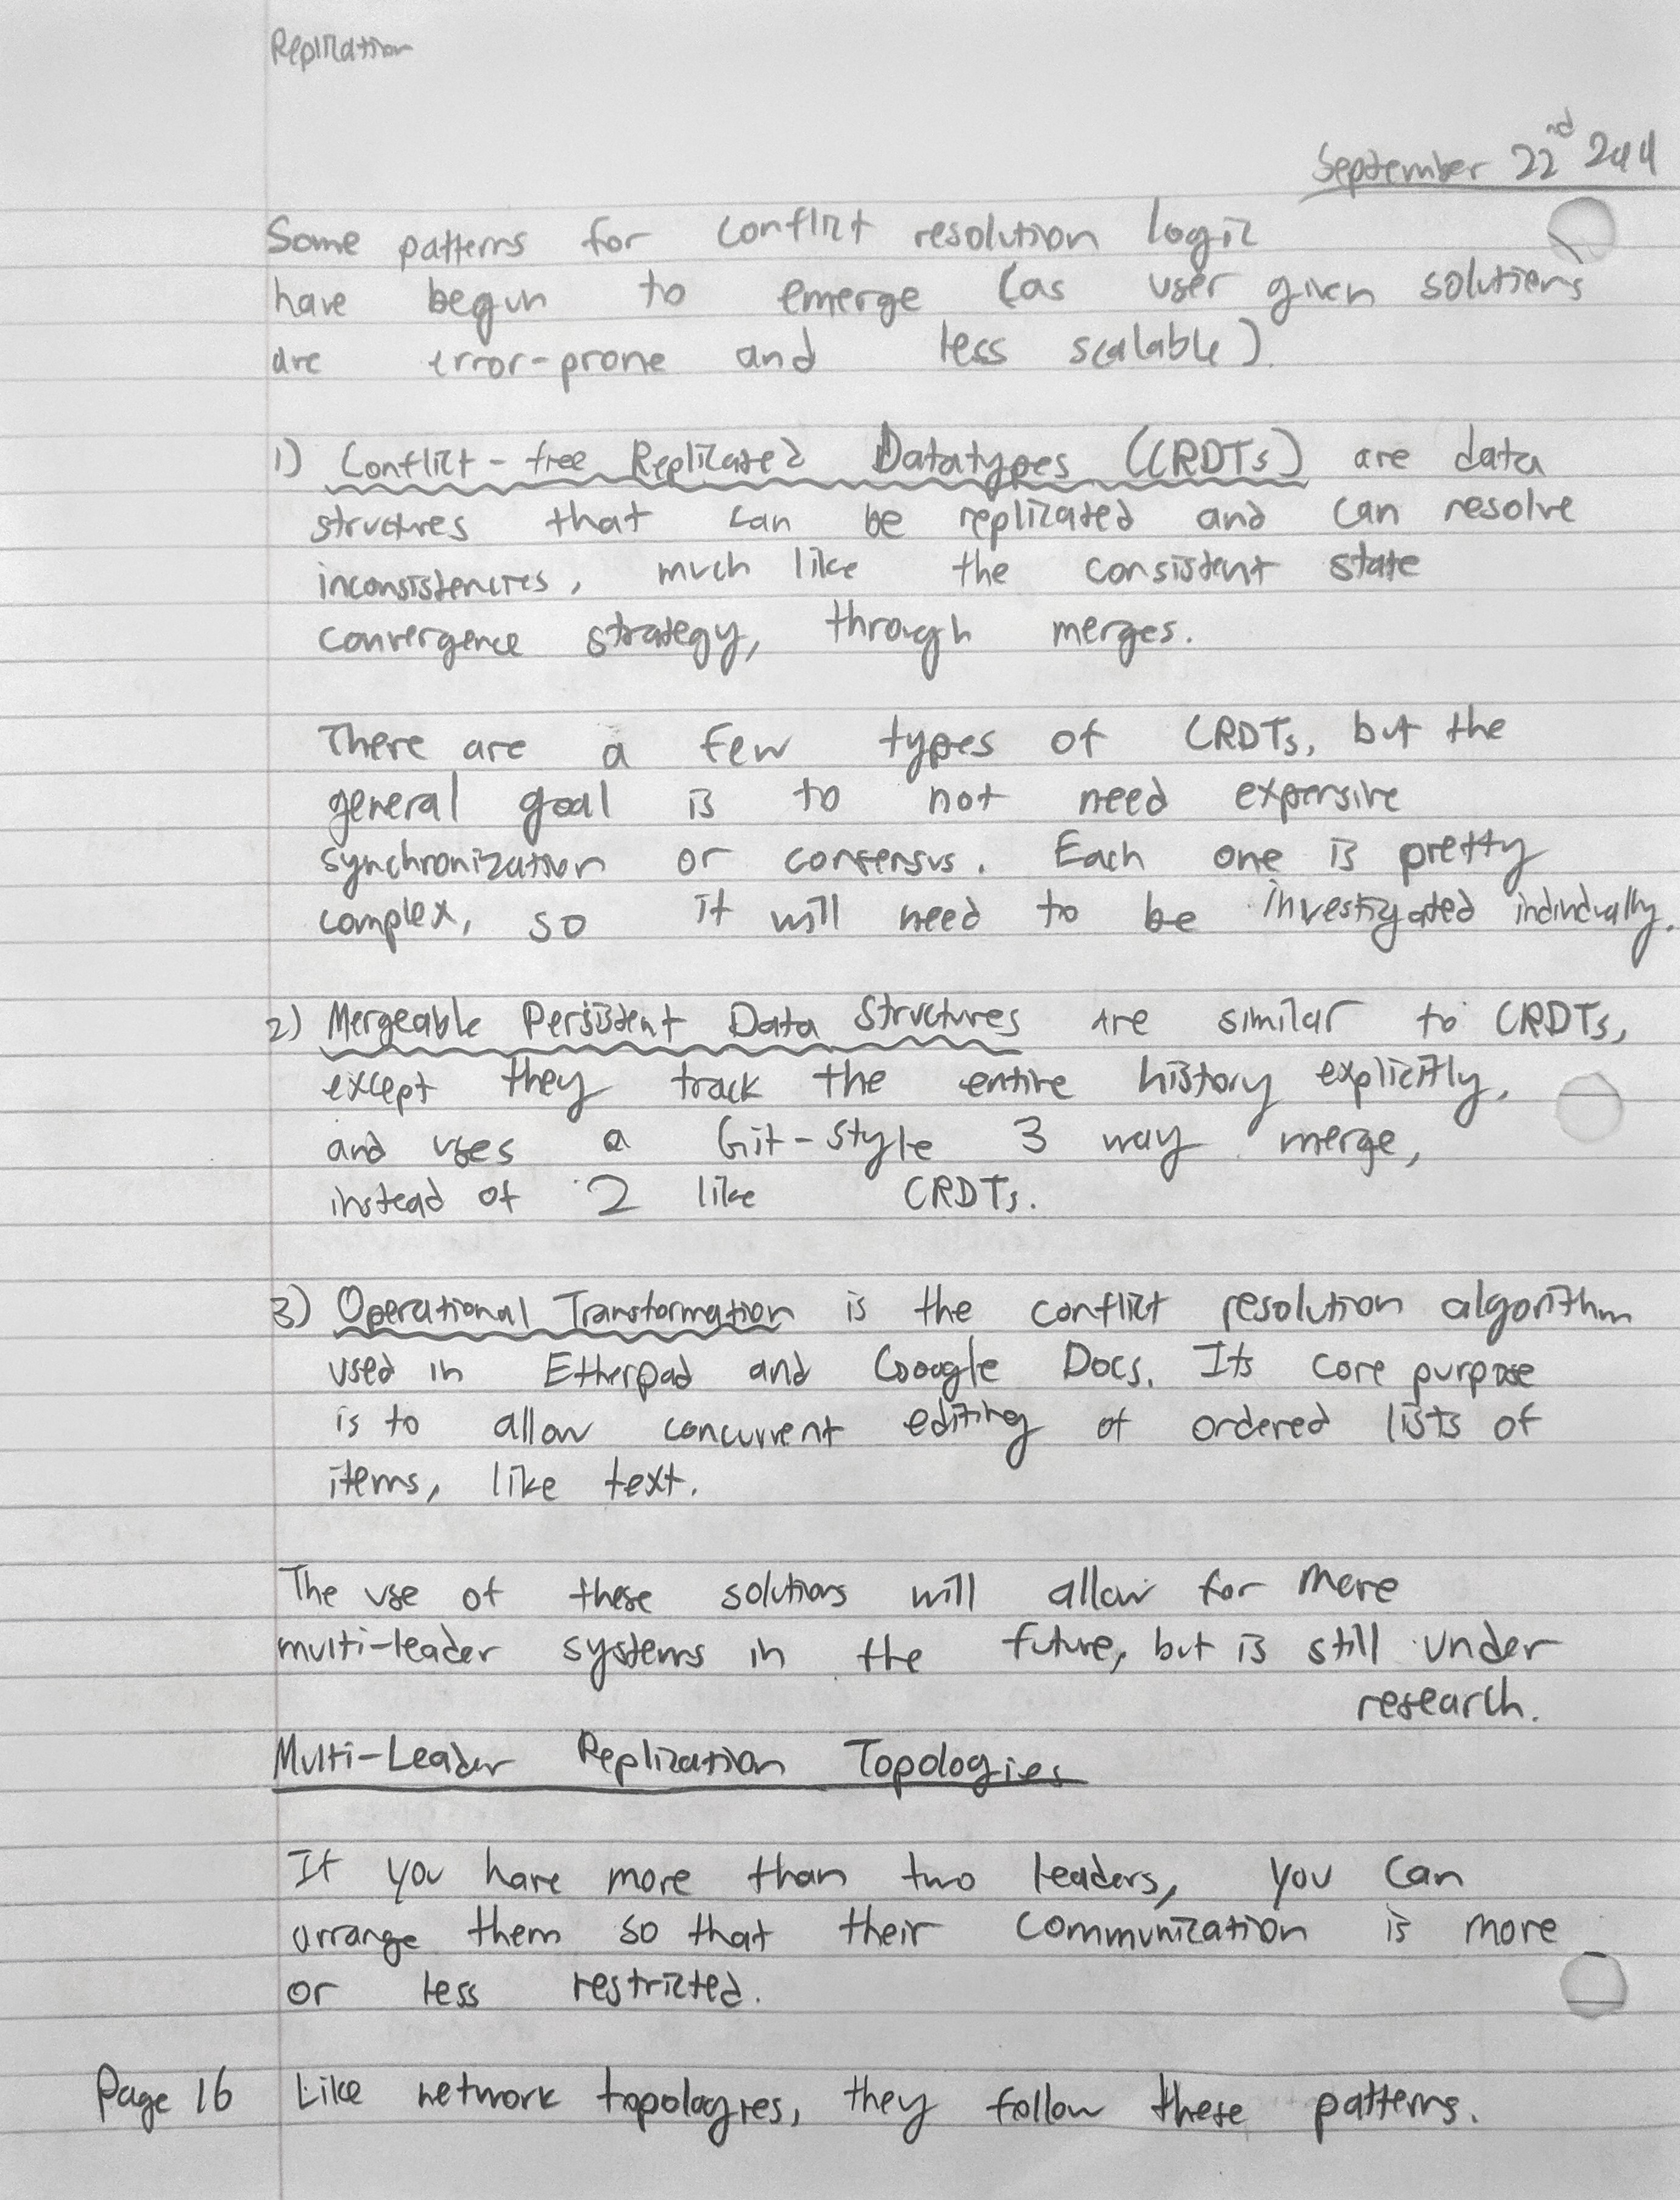 Replication
September 22nd
Some patterns for conflict resolution logic
have begun to emerge (as user given solutions
are error-prone and less scalable).
1) Conflict-free Replicated Datatypes (CRDTs) are data
structures that can be replicated and can resolve
inconsistencies, much like the consistent state
convergence strategy, through merges.
There are a few types of CRDTs, but the
general goal is to not need expensive
synchronization or consensus. Each one is pretty
complex, so it will need to be investigated individually.
2) Mergeable Persistent Data Structures are similar to CRDTs,
except they track the entire history explicitly,
and uses a Git-style 3 way merge,
instead of 2 like CRDTs.
3) Operational Transformation is the conflict resolution algorithm
used in Etherpad and Google Docs. Its core purpose
is to allow concurrent editing of ordered lists of
items, like text.
The use of these solutions will allow for more
multi-leader systems in the future, but is still under
research.
Multi-Leader Replication Topologies
If you have more than two leaders, you can
arrange them so that their communication is more
or less restricted.
Page 16 Like network topologies, they follow these patterns.